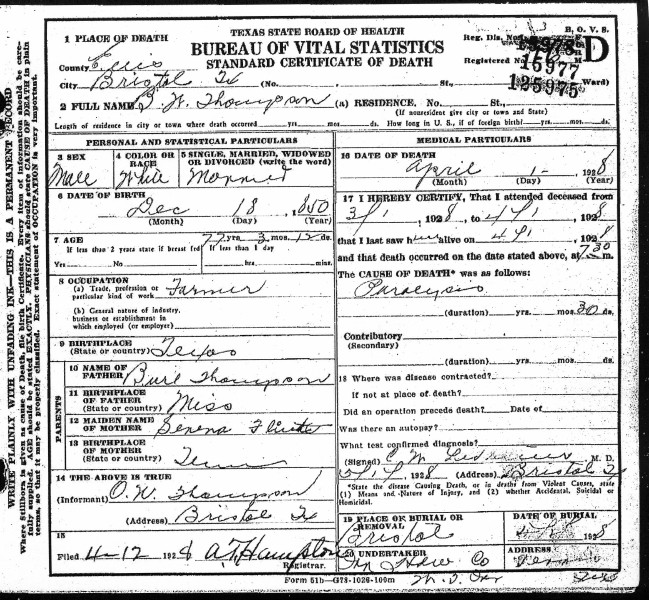 TEXAS STATE BOARD OF HEALTH
BUREAU OF VITAL STATISTICS
STANDARD CERTIFICATE OF DEATH
B. O. V. S.
Reg. Dis. No.
D
Registered No. 15977
125975
Ward)
1 PLACE OF DEATH
County Ellis
City Bristol Tx (No. St.,
2 FULL NAME B. W. Thompson (a) RESIDENCE. No. St.,
(If nonresident give city or town and State)
Length of residence in city or town where death occurred yrs. mos. ds. How long in U. S., if of foreign birth? yrs. mos. ds.
PERSONAL AND STATISTICAL PARTICULARS
3 SEX
Male
4 COLOR OR RACE
White
5 SINGLE, MARRIED, WIDOWED OR DIVORCED (write the word)
Married
6 DATE OF BIRTH
Dec 18, 1850
(Month) (Day) (Year)
7 AGE
77 yrs. 3 mos. 12 ds.
If less than 2 years state if breast fed If less than 1 day
Yes No hrs. min.
8 OCCUPATION
(a) Trade, profession or particular kind of work Farmer
(b) General nature of industry, business or establishment in which employed (or employer)
9 BIRTHPLACE
(State or country) Texas
PARENTS
10 NAME OF FATHER Burl Thompson
11 BIRTHPLACE OF FATHER
(State or country) Miss
12 MAIDEN NAME OF MOTHER Serena
13 BIRTHPLACE OF MOTHER
(State or country) Tenn
14 THE ABOVE IS TRUE
(Informant) O. W. Thompson
(Address) Bristol Tx
15
Filed 4-12 1928 A. T. Hampton
Registrar.
MEDICAL PARTICULARS
16 DATE OF DEATH
April 1- 1928
(Month) (Day) (Year)
17 I HEREBY CERTIFY, That I attended deceased from
3/1, 1928 to 4/1, 1928
that I last saw him alive on 4/1, 1928
and that death occurred on the date stated above, at 7 30 m.
The CAUSE OF DEATH* was as follows:
Paralysis
(duration) yrs. mos. 30 ds.
Contributory
(Secondary)
(duration) yrs. mos. ds.
18 Where was disease contracted?
if not at place of death?
Did an operation precede death? Date of
Was there an autopsy?
What test confirmed diagnosis?
(Signed) C. M. M. D.
1928 (Address) Bristol Tx
*State the disease Causing Death, or in deaths from Violent Causes, state (1) Means and Nature of Injury, and (2) whether Accidental, Suicidal or Homicidal.
19 PLACE OF BURIAL OR REMOVAL
Bristol
DATE OF BURIAL
1928
20 UNDERTAKER
Hdw Co
ADDRESS
Form 51b—G78-1026-100m
WRITE PLAINLY WITH UNFADING INK—THIS IS A PERMANENT RECORD
Where Stillborn is given as cause of Death, file birth Certificate. Every item of information should be carefully supplied. AGE should be stated EXACTLY. PHYSICIANS should state CAUSE OF DEATH in plain terms, so that it may be properly classified. Exact statement of OCCUPATION is very important.